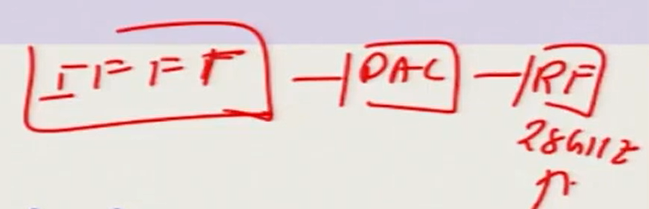 IFFT DAC RF
28GHz